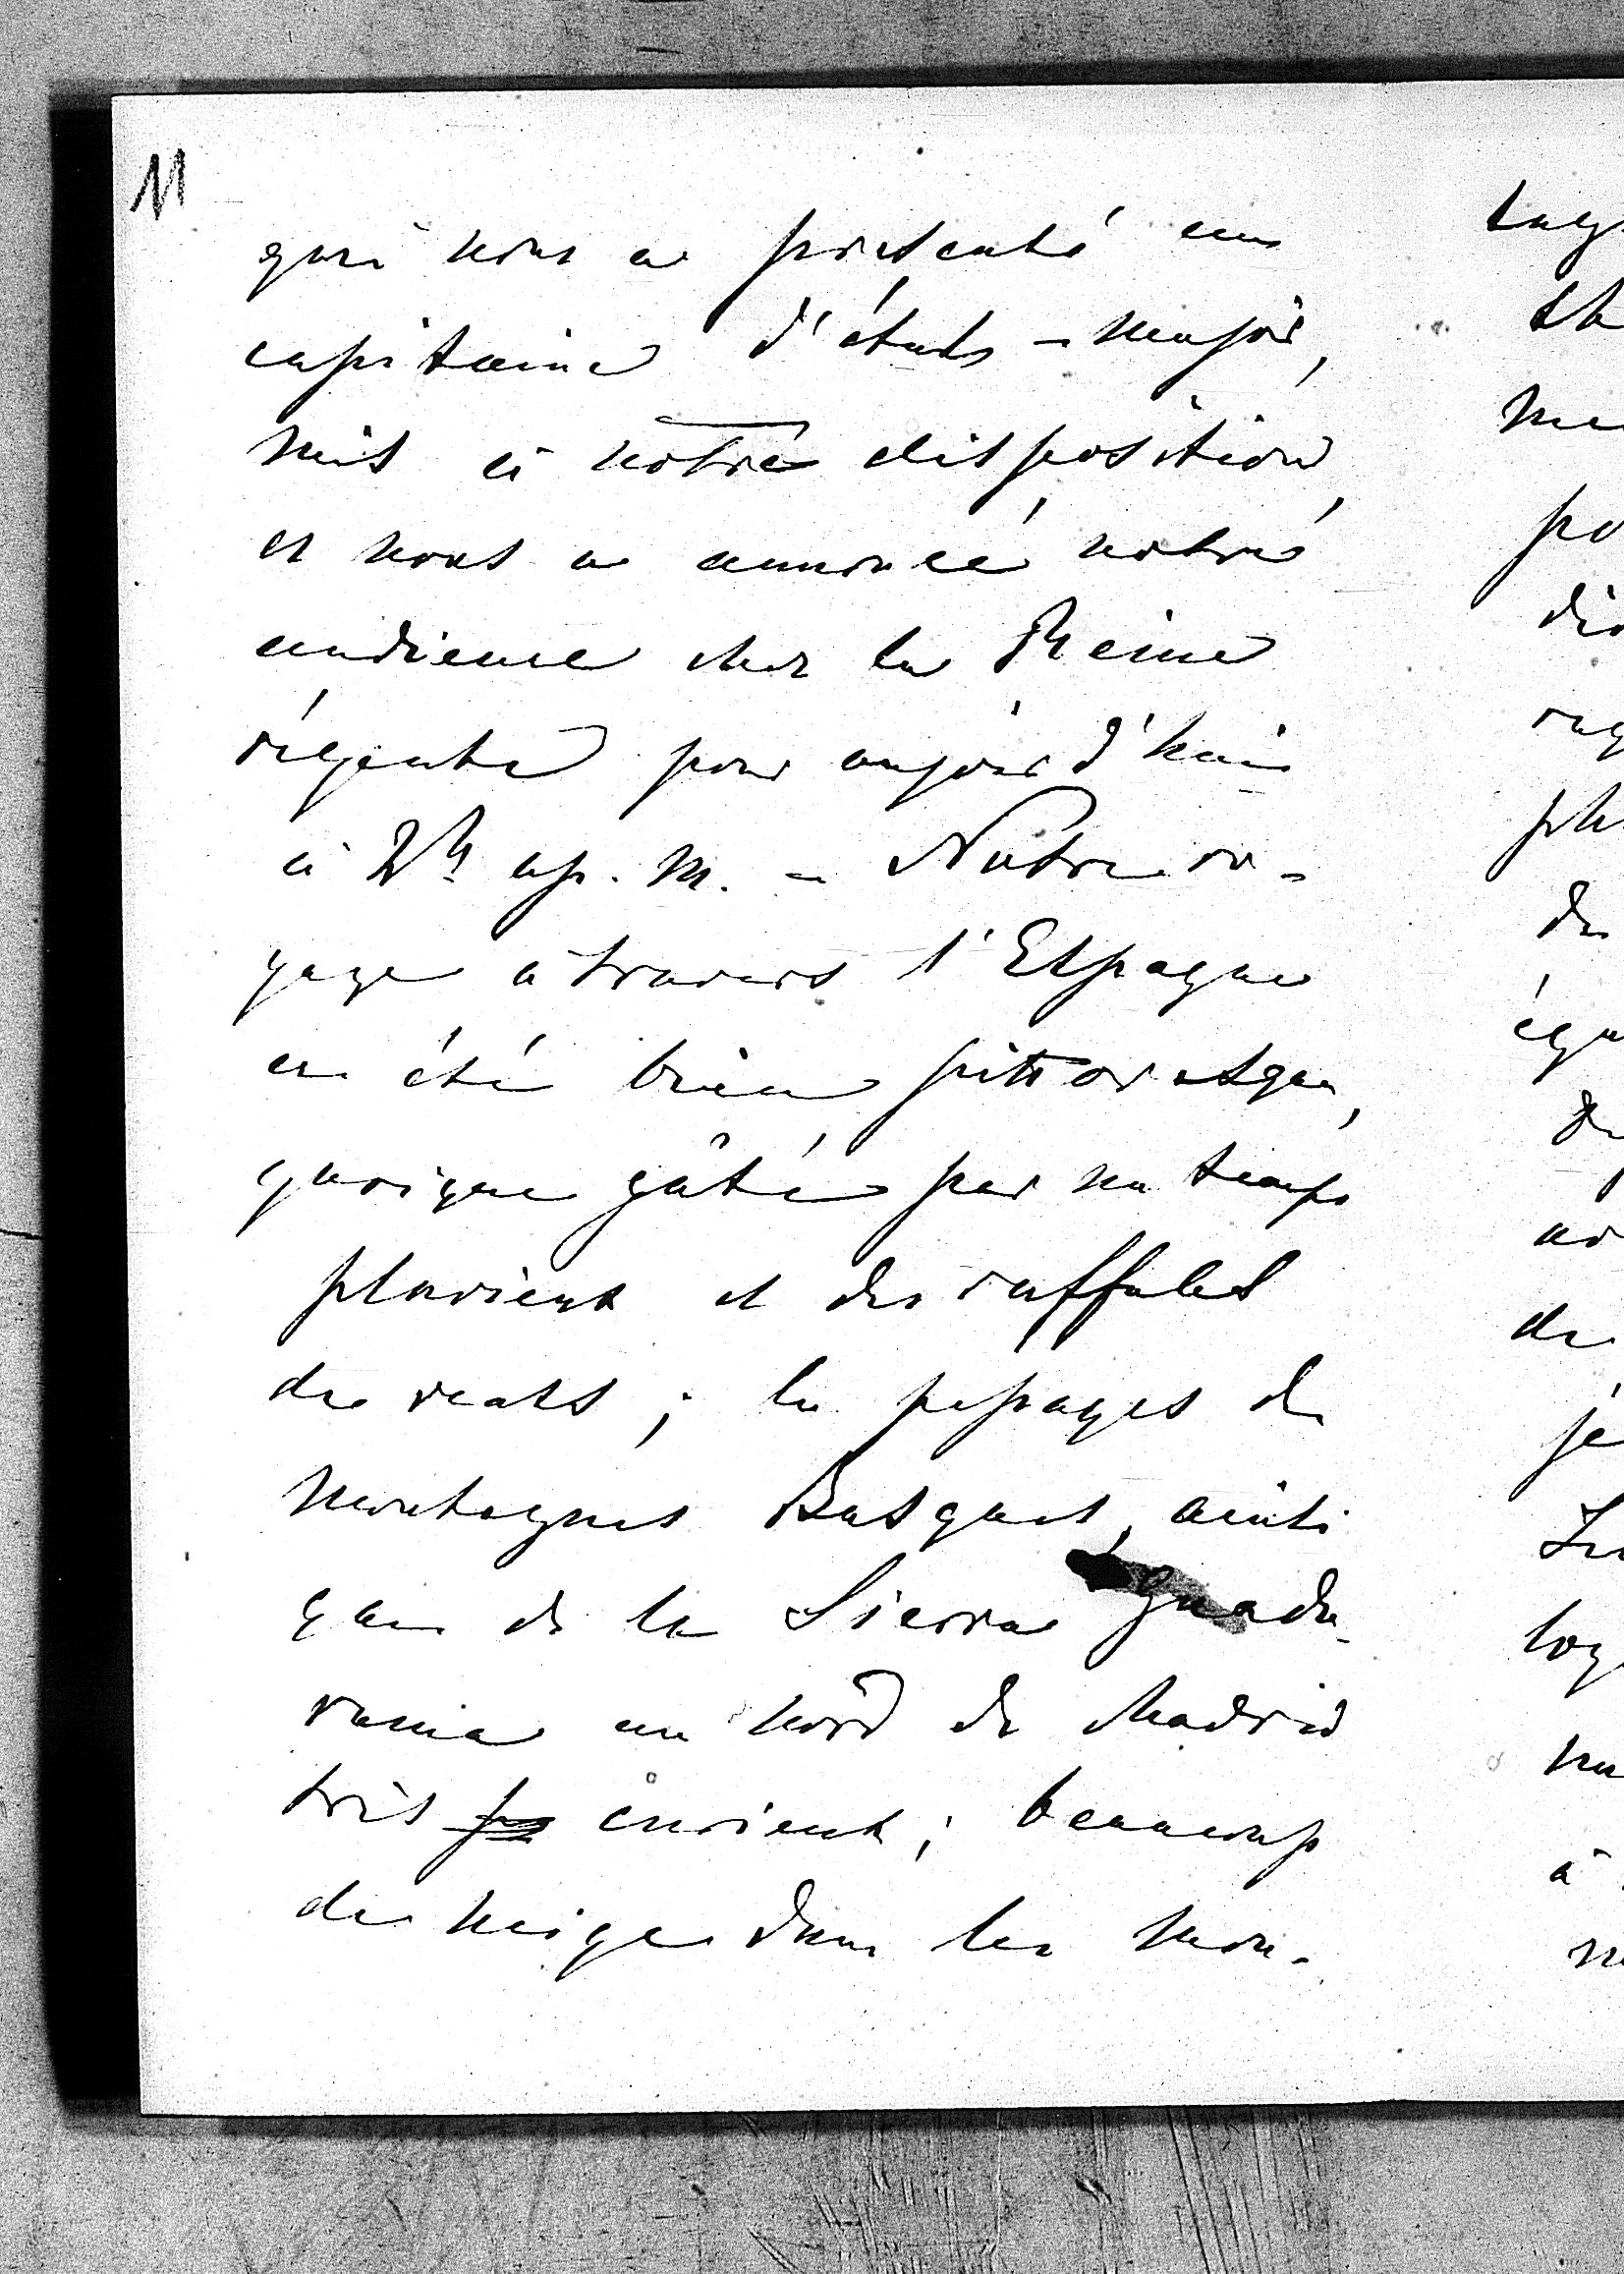 11
qui nous a présenté un
capitaine d'états-major,
mis à notre disposition,
et nous a annoncé notre
audience chez la Reine
régente pour aujourd'hui
à 2h ap. m. - Notre vo-
yage à travers l'Espagne
a été bien pittoresque,
quoique gâté par un temps
pluvieux et des raffales
de vents; les passages de
montagnes Basques, ainsi
que de la Sierra Guada-
rama au nord de Madrid
très curieux; beaucoup
de neige dans les mon-